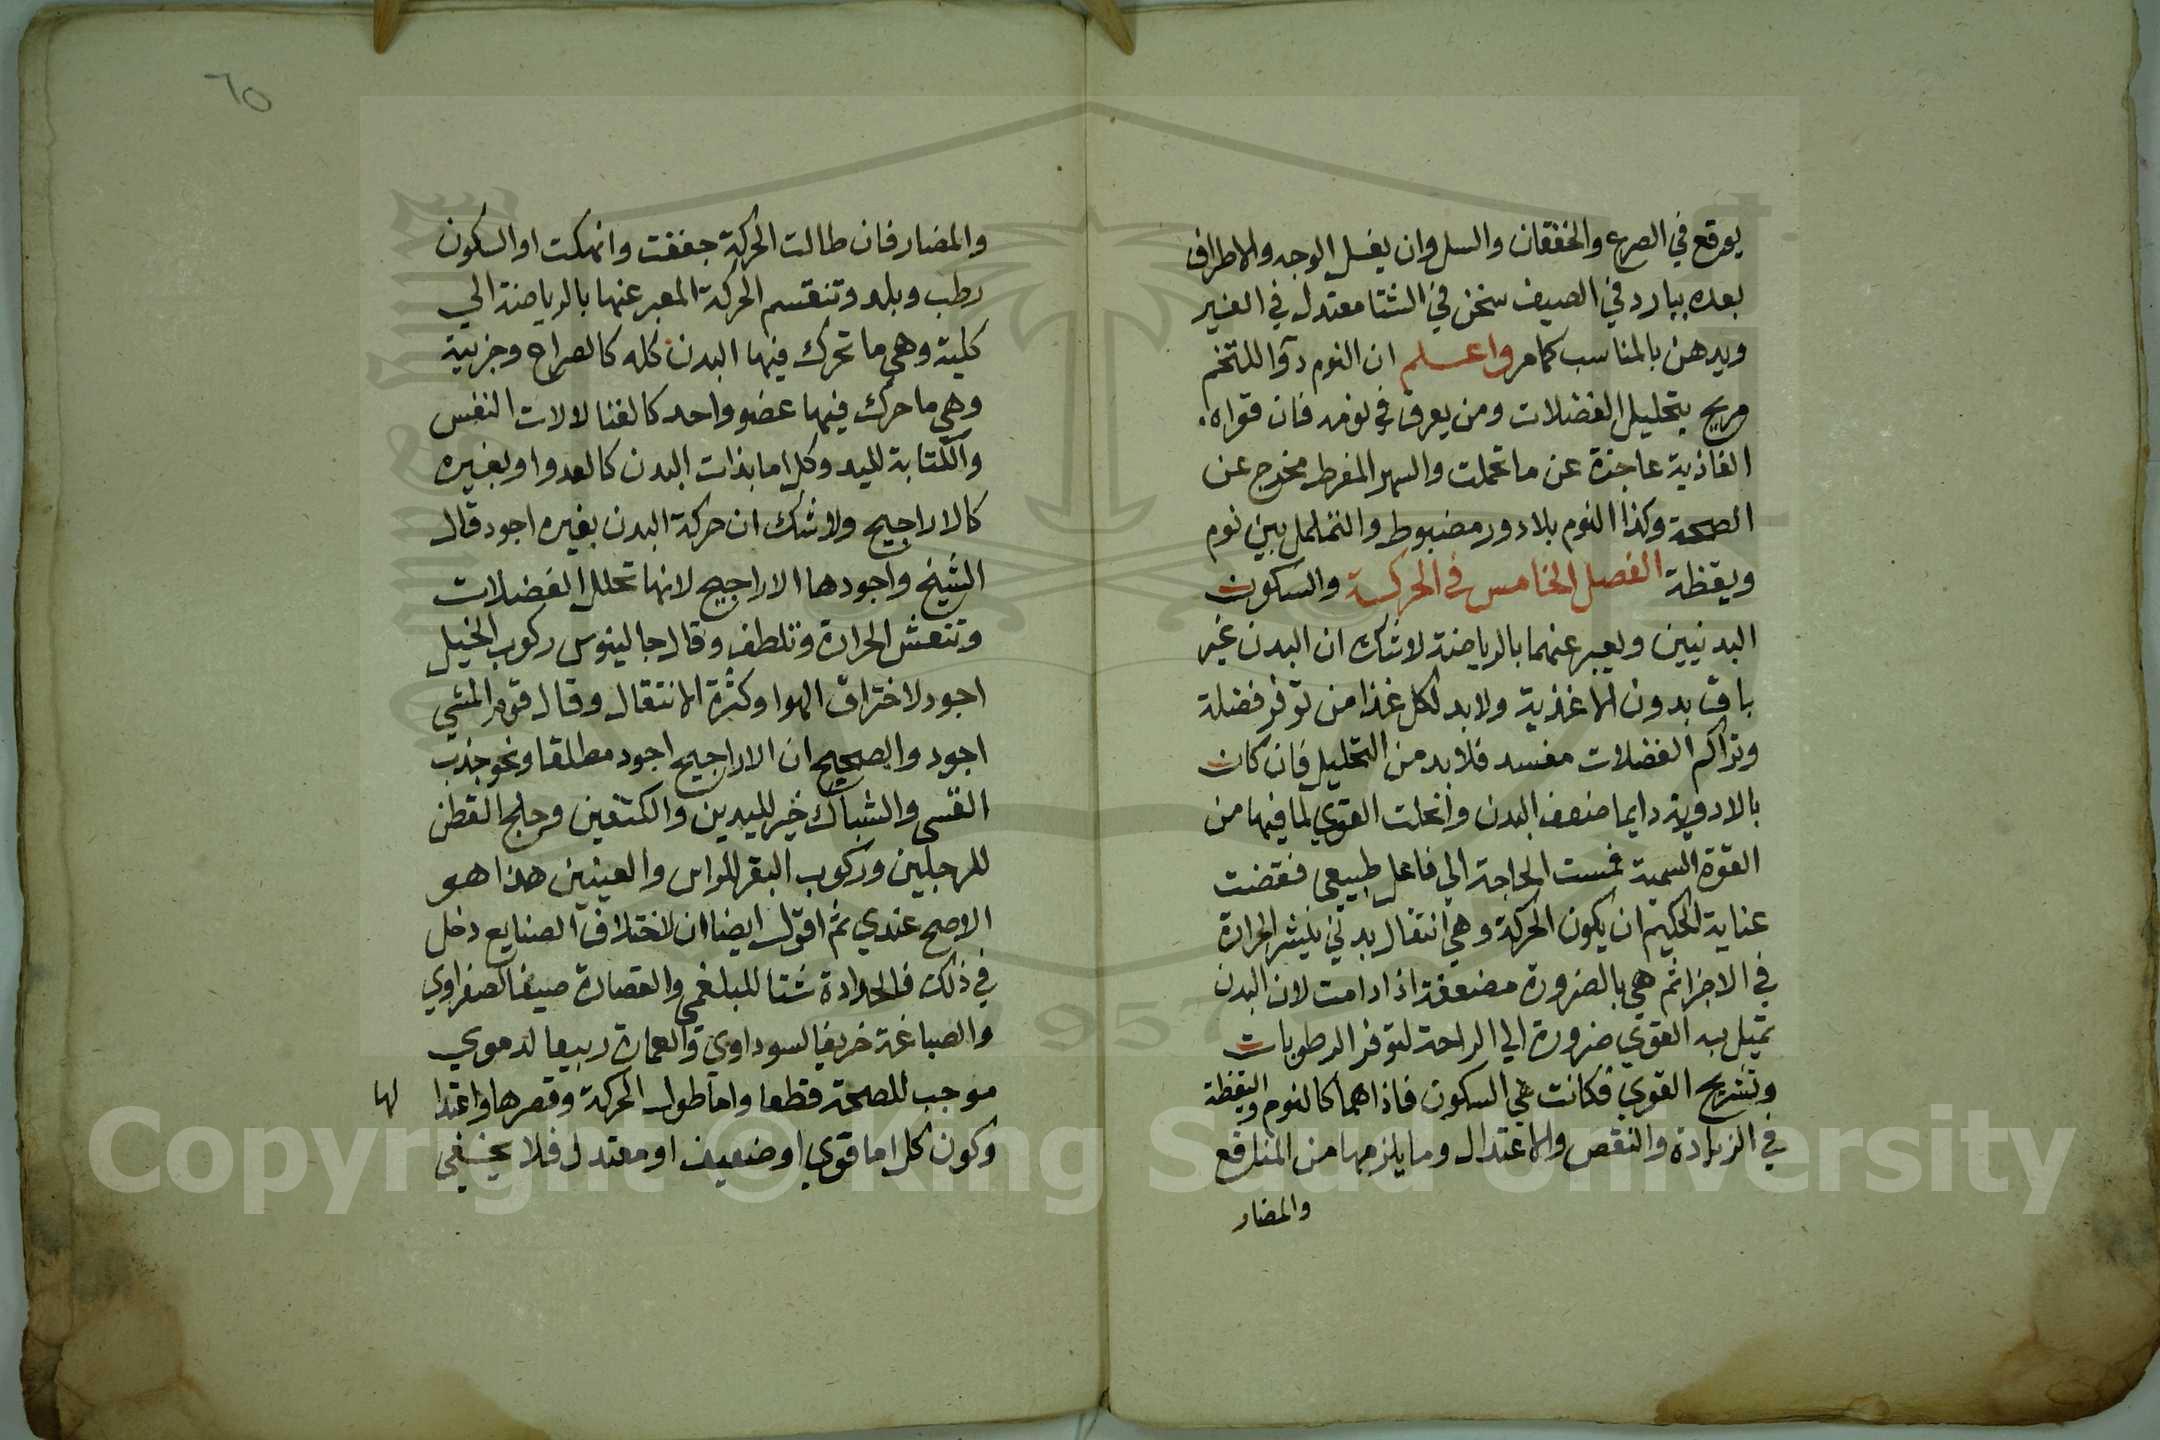 يوقع في الصرع والخفقان والسل وان يغسل الوجه والاطراف
بعده ببارد في الصيف سخن في الشتا معتدل في الغير
ويدهن بالمناسب كما مر واعلم ان النوم دوآ للتخم
مريح بتحليل الفضلات ومن يعرق في نومه فان قواه
الغاذية عاجزة عن ما تحملت والسهر المفرط مخرج عن
الصحة وكذا النوم بلا دور مضبوط والتململ بين نوم
ويقظة الفصل الخامس في الحركة والسكون
البدنيين ويعبر عنهما بالرياضة لا شك ان البدن غير
باق بدون الاغذية ولا بد لكل غذا من توفر فضلة
وتراكم الفضلات مفسد فلا بد من التحليل فان كانت
بالادوية دايما ضعف البدن وانحلت القوي لما فيها من
القوة السمية فمست الحاجة الي فاعل طبيعي فقضت
عناية الحكيم ان يكون الحركة وهي انتقال بدني ينشر الحرارة
في الاجزا ثم هي بالضرورة مضعفة اذا دامت لان البدن
تميل به القوي ضرورة الي الراحة لتوفر الرطوبات
وتستريح القوي فكانت هي السكون فاذا هما كالنوم واليقظة
في الزيادة والنقص والاعتدال وما يلزمها من المنافع
والمضار
٦٥
والمضار فان طالت الحركة جففت وانهكت او السكون
رطب وبلد وتنقسم الحركة المعبر عنها بالرياضة الي
كلية وهي ما تحرك فيها البدن كله كالصراع وجزيية
وهي ما حرك فيها عضو واحد كالغنا لالات النفس
والكتابة لليد وكل اما بذات البدن كالعدو او بغيره
كالاراجيح ولا شك ان حركة البدن بغيره اجود قال
الشيخ واجودها الاراجيح لانها تحلل الفضلات
وتنعش الحرارة وتلطف وقال جالينوس ركوب الخيل
اجود لاختراق الهوا وكثرة الانتقال وقال قوم المشي
اجود والصحيح ان الاراجيح اجود مطلقا ونحو جذب
القسي والشباك خير لليدين والكتفين وحلج القطن
للرجلين وركوب البقر للراس والعينين هذا هو
الاصح عندي ثم اقول ايضا ان لاختلاف الصنايع دخل
في ذلك فالحدادة شتا للبلغمي والقصارة صيفا لصفراوي
والصباغة خريفا لسوداوي والعمارة ربيعا لدموي
موجب للصحة قطعا واما طول الحركة وقصرها واعتدا لها
وكون كل اما قوي او ضعيف او معتدل فلا يخفي